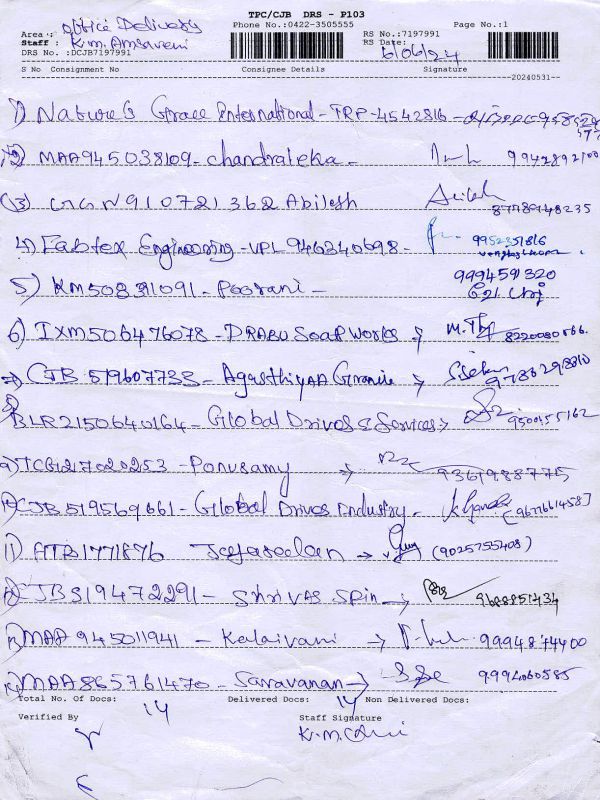 TPC/CJB DRS - P103
Area : office Delivery Phone No.:0422-3505555 Page No.:1
Staff : K.M. Amsaveni RS No.:7197991
DRS No. :DCJB7197991 RS Date: 6/06/24
S No Consignment No Consignee Details Signature
--20240531--
1) Nature & Grace International - TRP-4542816 -
2) MAA945038109 - chandraleka - 9942892100
3) GGN910721362 Abilesh 8778948235
4) Fabtex Engineering - VPL 946340698 - 9952351816
5) KM508391091 - Poorani - 9994591320
6) IXM506476078 - PRABU Soap Works 8220080566
7) CJB 519607733 - Agasthiyaa Granite 9786298810
8) BLR2150640164 - Global Drives & Services 9500455162
9) TCG127020253 - Ponusamy 9361988775
10) CJB519569661 - Global Drives Industry - [9677661458]
11) ATR1771876 (9025755408)
12) CJB519472291 - Shrivas Spin 9688851434
13) MAA 945011941 - Kalaivani 9994874400
14) MAA865761470 - Saravanan 9994060585
Total No. Of Docs: 14 Delivered Docs: 14 Non Delivered Docs:
Verified By Staff Signature